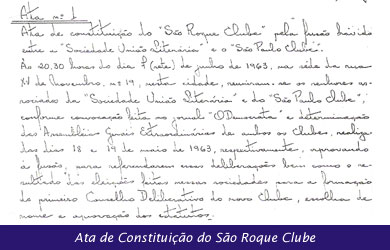 Ata nº 1
Ata de constituição do "São Roque Clube" pela fusão havida
entre a "Sociedade União Literária" e o "São Paulo Clube".
Às 20,30 horas do dia 7 (sete) de junho de 1963, na sede da rua
XV de Novembro, nº 19, nesta cidade, reuniram-se os senhores as-
sociados da "Sociedade União Literária" e do "São Paulo Clube",
conforme convocação feita no jornal "O Democrata" e determinação
das Assembléias Gerais Extraordinárias de ambos os Clubes, realiza
das dias 18 e 19 de maio de 1963, respectivamente, aprovando
a fusão, para referendarem suas deliberações bem como o re-
sultado das eleições feitas nessas sociedades para a formação
do primeiro Conselho Deliberativo do novo Clube, escolha de
nome e aprovação dos estatutos.
Ata de Constituição do São Roque Clube